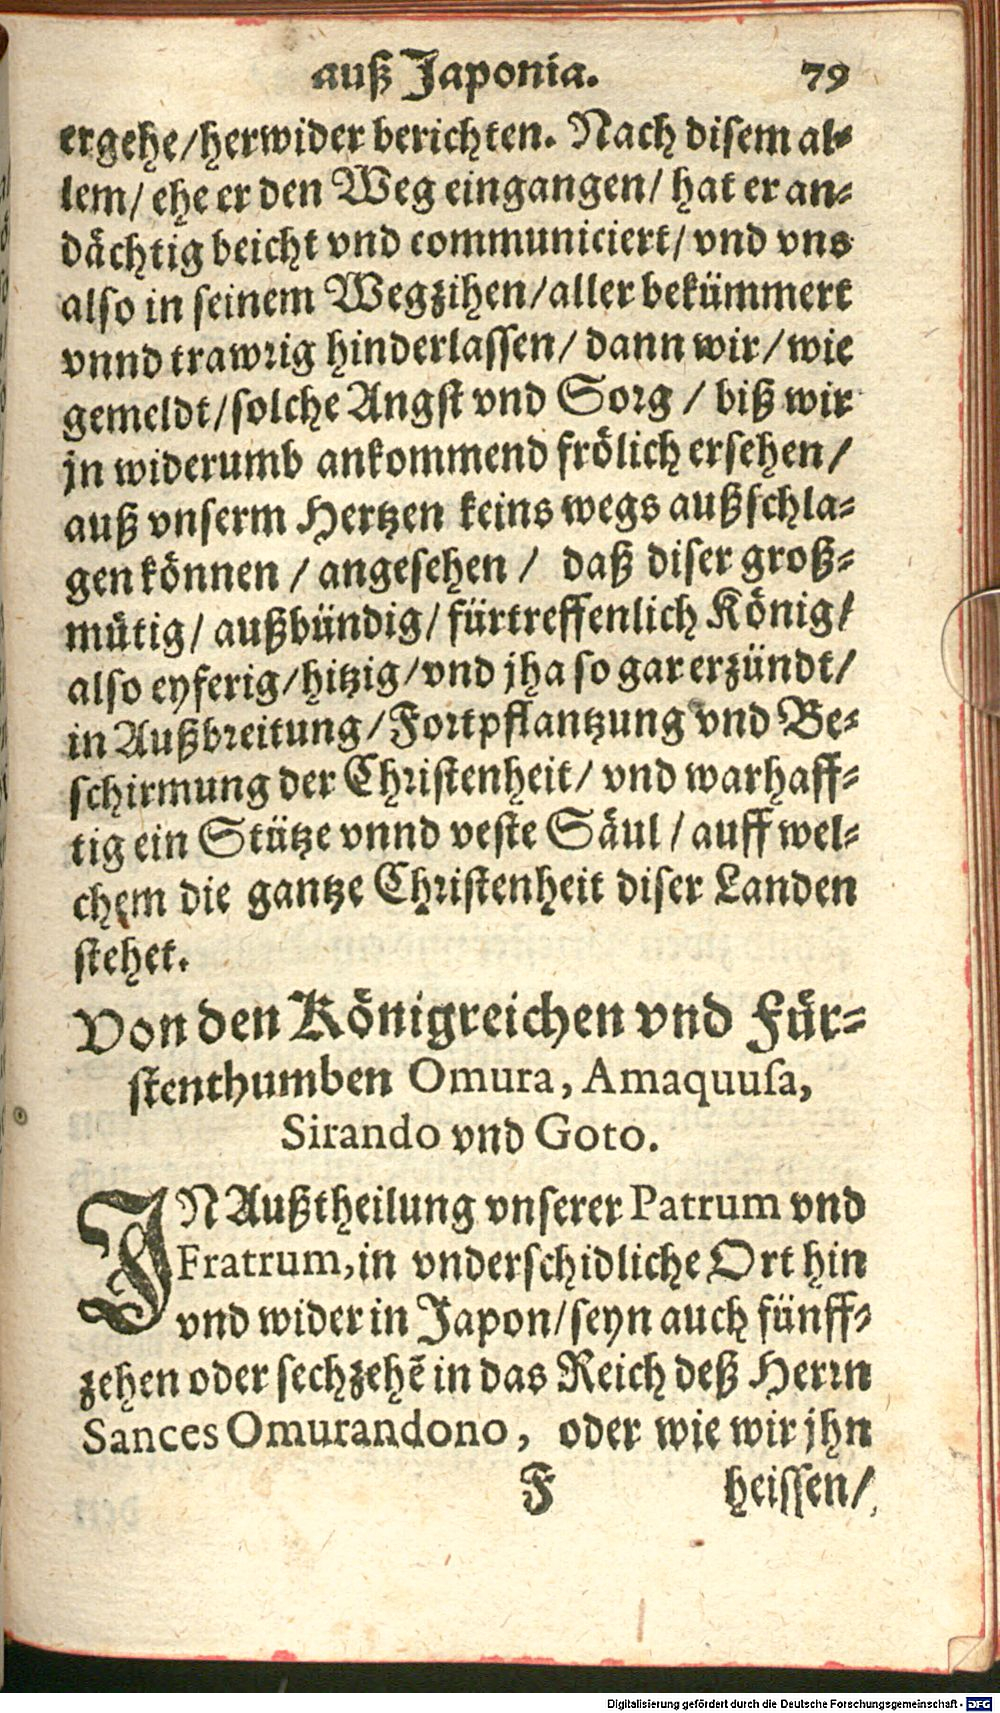 auß Japonia. 79
ergehe/herwider berichten. Nach disem al-
lem/ ehe er den Weg eingangen/ hat er an-
dächtig beicht vnd communiciert/ vnd vns
also in seinem Wegzihen/aller bekümmert
vnnd trawrig hinderlassen/ dann wir/ wie
gemeldt/solche Angst vnd Sorg / biß wir
jn widerumb ankommend frölich ersehen/
auß vnserm Hertzen keins wegs außschla-
gen können / angesehen / daß diser groß-
mütig/ außbündig/ fürtreffenlich König/
also eyferig/hitzig/vnd jha so gar erzündt/
in Außbreitung/Fortpflantzung vnd Be-
schirmung der Christenheit/ vnd warhaff-
tig ein Stütze vnnd veste Säul / auff wel-
chem die gantze Christenheit diser Landen
stehet.
Von den Königreichen vnd Für-
stenthumben Omura, Amaquusa,
Sirando vnd Goto.
IN Außtheilung vnserer Patrum vnd
Fratrum, in vnderschidliche Ort hin
vnd wider in Japon/seyn auch fünff-
zehen oder sechzehē in das Reich deß Herrn
Sances Omurandono, oder wie wir jhn
F heissen/
Digitalisierung gefördert durch die Deutsche Forschungsgemeinschaft - DFG